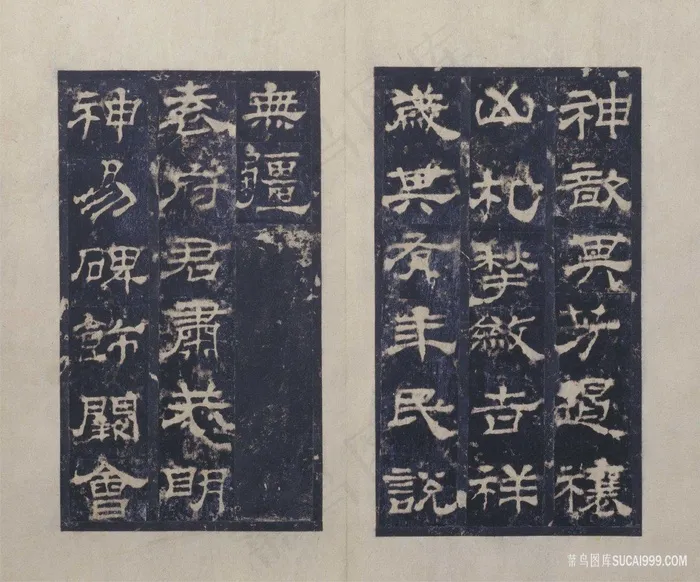 神歆其芳遏禳
凶札揫斂吉祥
歲其有年民說
無疆
袁府君肅恭明
神易碑飾闕會
菜鸟图库SUCAI999.COM